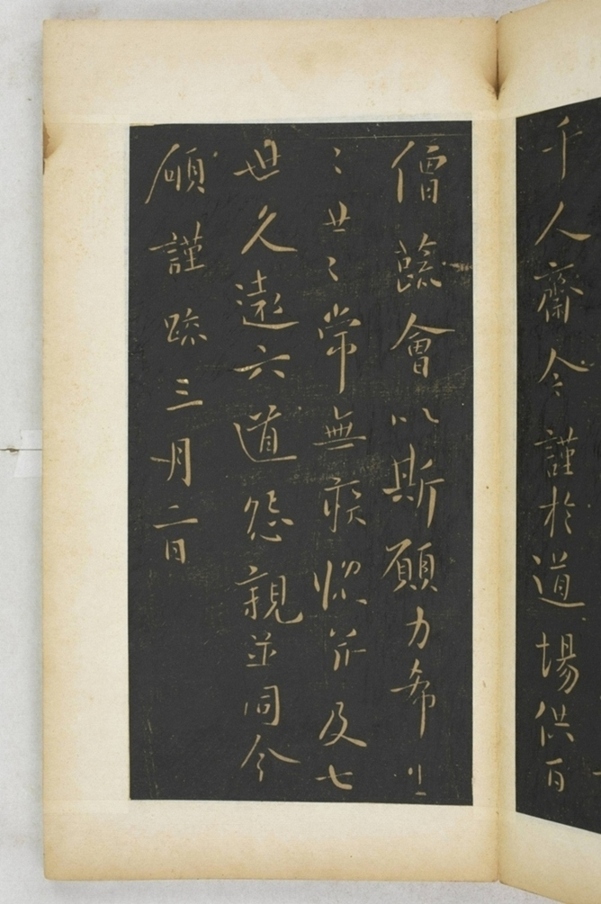 千人齋今謹於道場供百
僧蔬會以斯願力希生
〻世〻常無疾惱并及七
世久遠六道怨親並同今
願謹疏三月二日